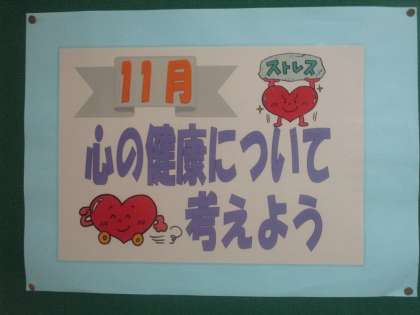 11月
ストレス
心の健康について
考えよう